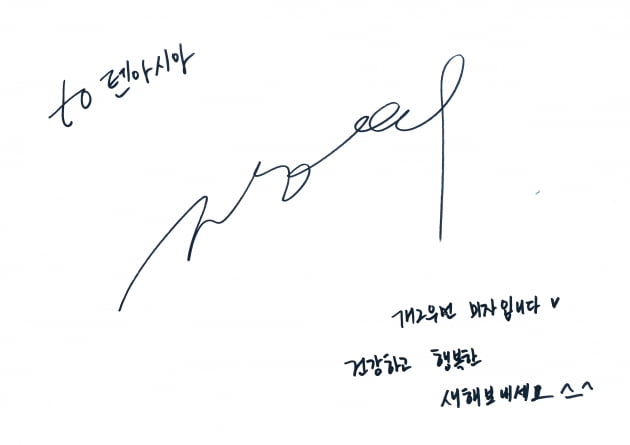 to 텐아시아
개그우먼 미자입니다 ♥
건강하고 행복한
새해보내세요 ^^